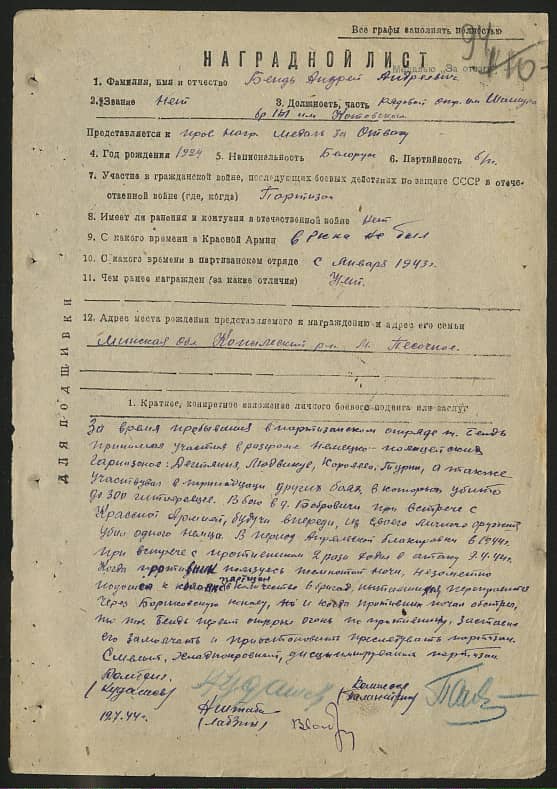 Все графы заполнять полностью
94
НАГРАДНОЙ ЛИСТ
Медалью „За отвагу
1. Фамилия, имя и отчество Бендь Андрей Андреевич
2. Звание Нет 3. Должность, часть рядовой отр. им
бр 161 им Котовского
Представляется к прав. нагр. медаль за Отвагу
4. Год рождения 1924 5. Национальность Белорус 6. Партийность б/п.
7. Участие в гражданской войне, последующих боевых действиях по защите СССР в отече-
ственной войне (где, когда) Партизан
8. Имеет ли ранения и контузии в отечественной войне Нет
9. С какого времени в Красной Армии в РККА не был
10. С какого времени в партизанском отряде с Января 1943г.
11. Чем ранее награжден (за какие отличия)
12. Адрес места рождения представляемого к награждению и адрес его семьи
Минская обл Копыльский р-н м. Песочное.
ДЛЯ ПОДШИВКИ
1. Краткое, конкретное изложение личного боевого подвига или заслуг
За время пребывания в партизанском отряде т. Бендь
принимал участия в разгроме Немецко-полицейских
гарнизонов: Людвикус, а также
участвовал в тринадцати других боях, в которых убито
до 300 гитлеровцев. В бою в д. Бобровичи при встрече с
Красной Армией, будучи впереди, из своего личного оружия
убил одного немца. В период Апрельской блокировки в 1944г.
при встрече с противником 2 раза ходил в атаку 9.4.44г.
Когда противник пользуясь темнотой ночи, незаметно
партизан
через канаву, но и когда противник начал обстрел,
т. Бендь открыл огонь по противнику, заставив
его замолчать и приостановить преследовать партизан.
Смелый, Хладнокровный, дисциплинированный партизан
(Кудашев)
Кудашев
Комиссар
Н. штаба
12.7.44г.